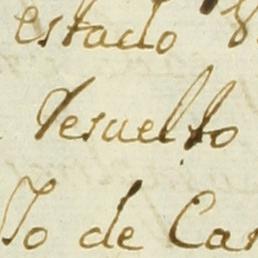 estado
resuelto
To de Car